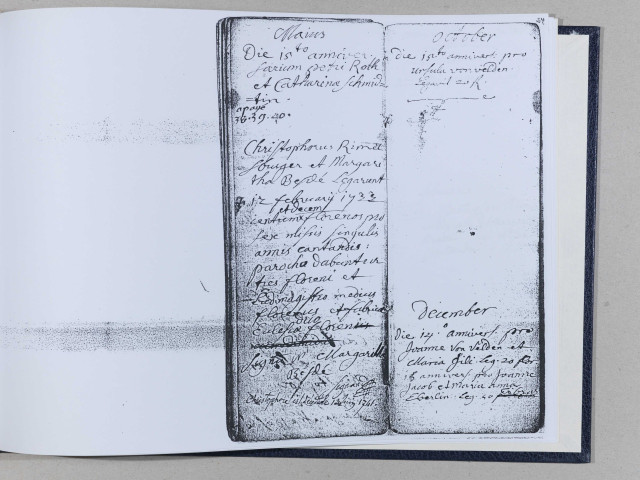 Maius
Die 15to anniver-
sarium petri Roth
et Catharinæ Schmid
tin.
apage
38.39.40.
Christophorus Rimel
spurger et Margari
tha Besdé Legarunt
12 februarij 1733
et decem
centum florenos pro
sex missis singulis
annis cantandis:
parocho dabuntur
tres floreni et
Ludimagistro medius
florenus et fabricæ
Ecclesiæ
Margarith
Besdé
24
October
Die 15to annivers. pro
Ursula von velden
legavit 20 fl.
December
Die 14.o annivers. pro
Joanne von Velden et
Maria Gili. leg. 20 flor
annivers pro Joanne
Jacob et Maria Anna
Eberlin. leg. 20